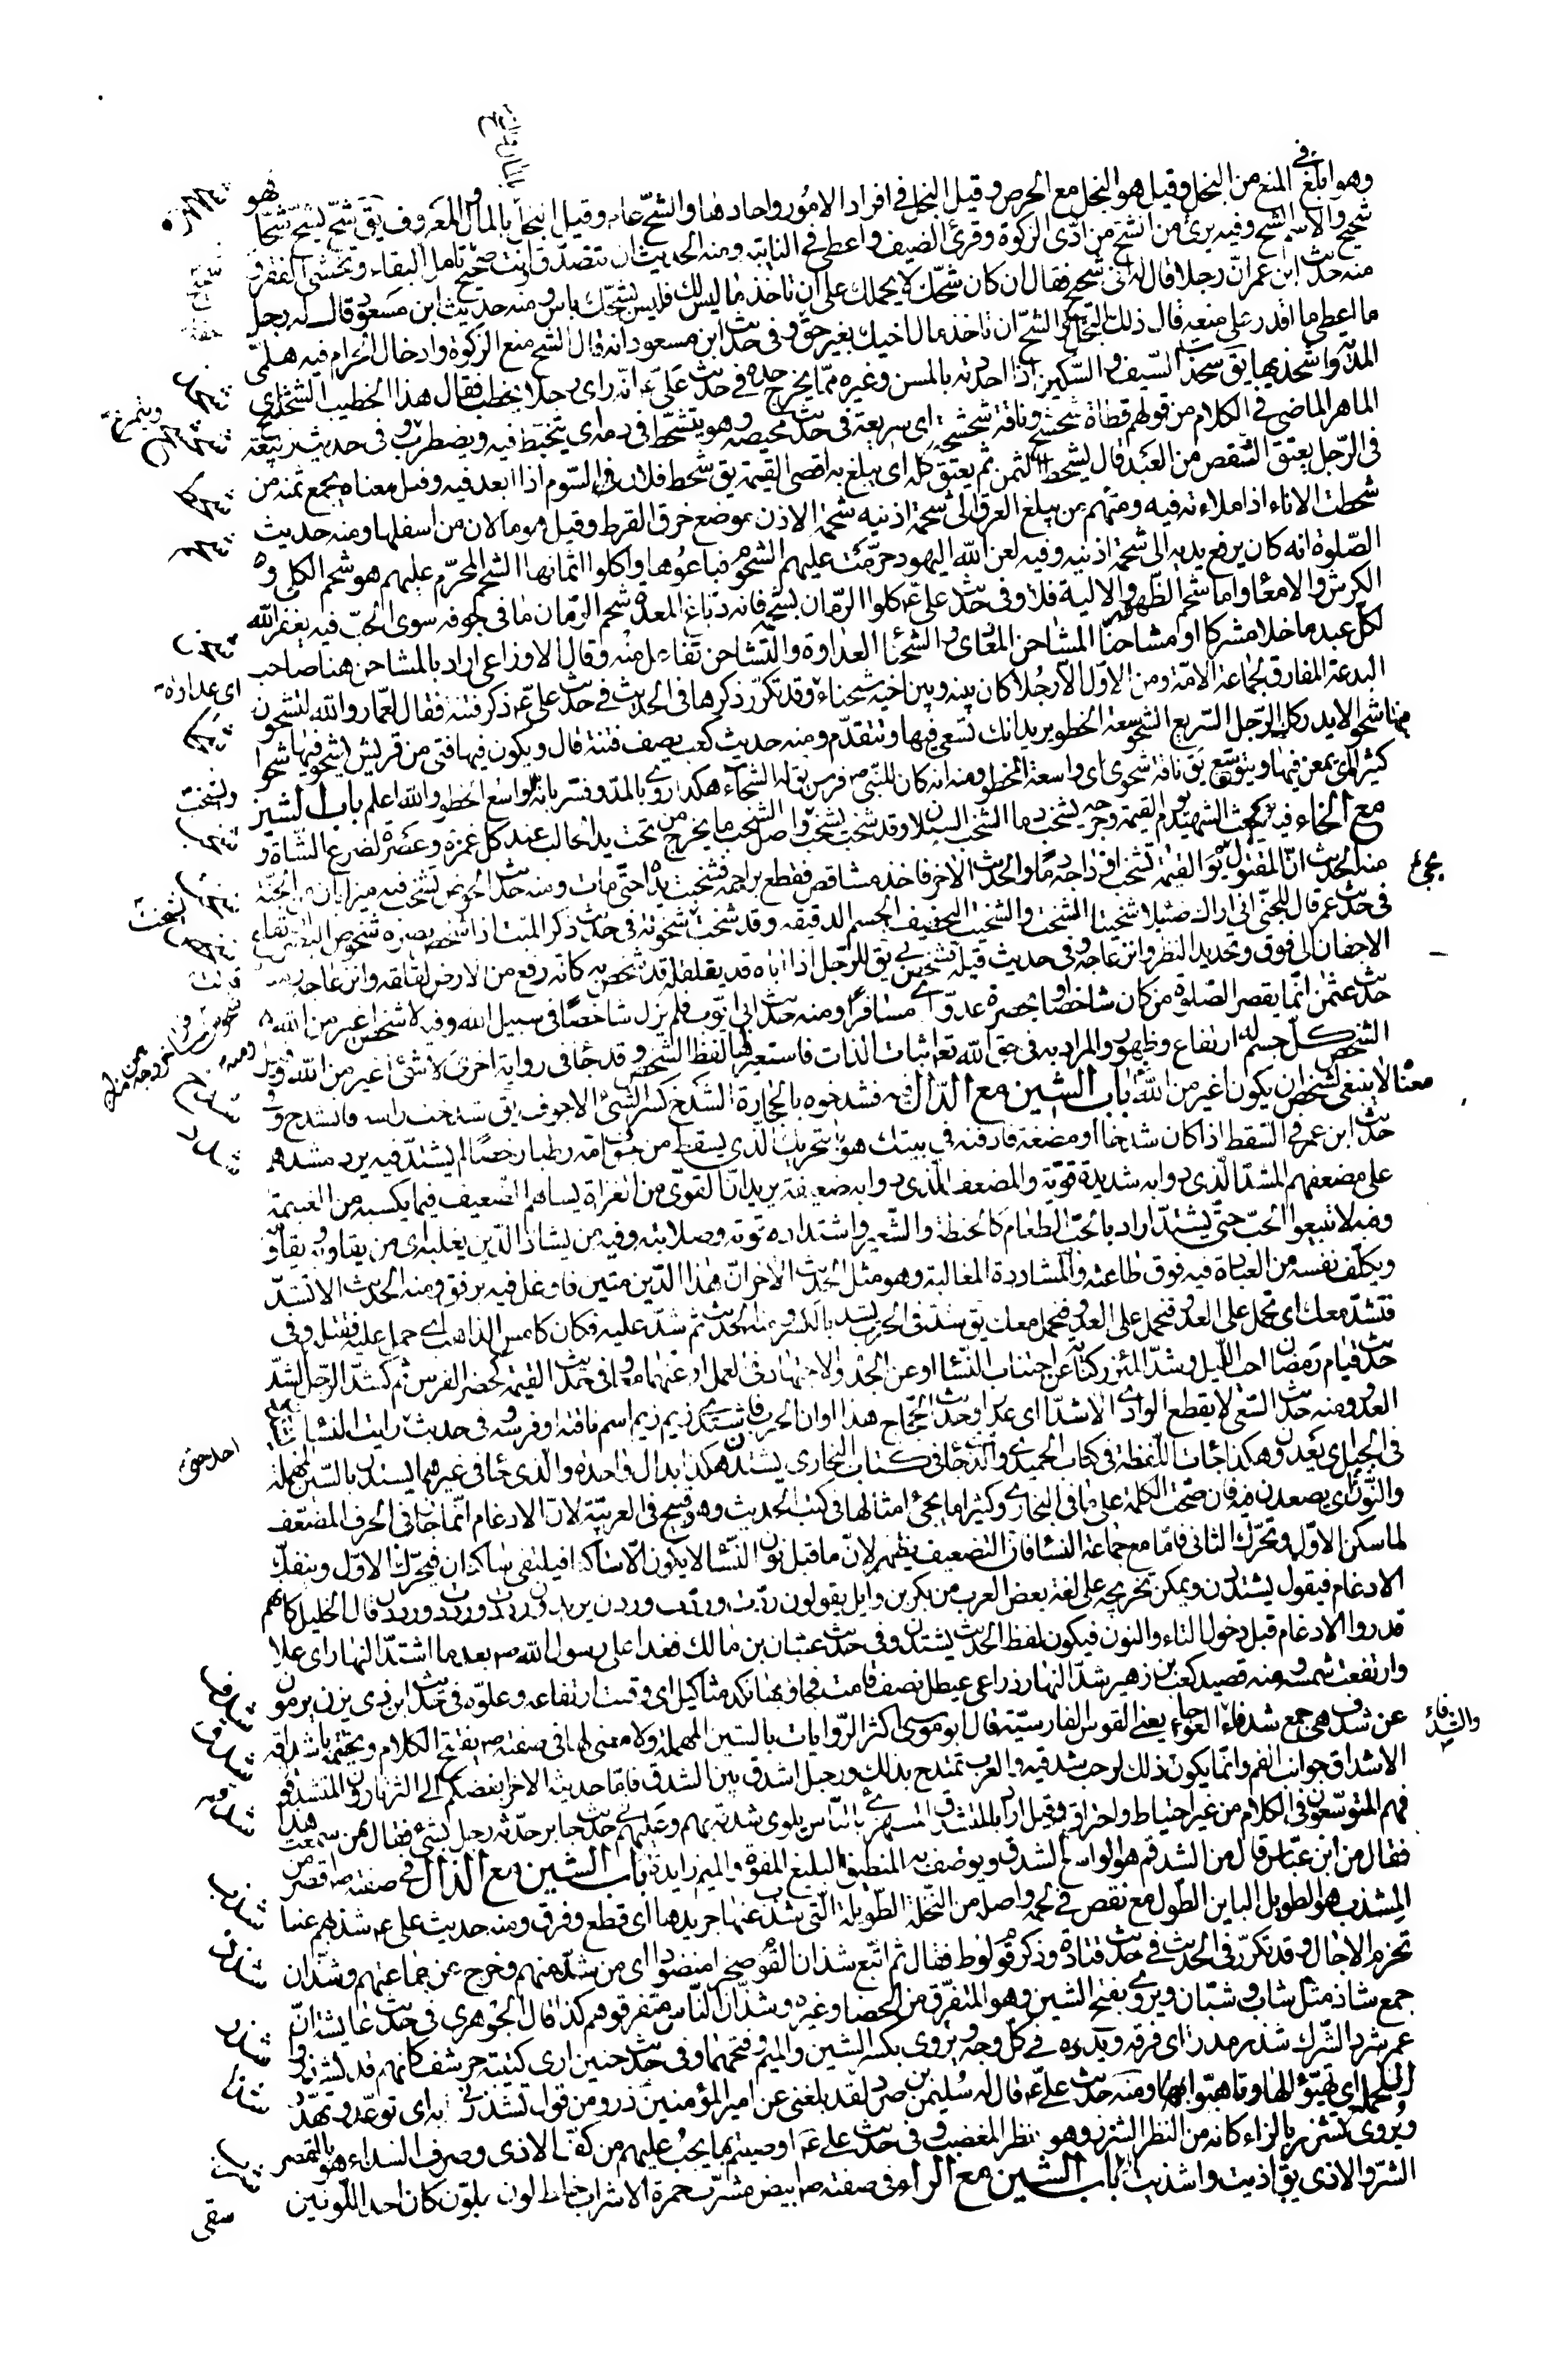 وهو ابلغ في المنع من البخل وقيل هو البخل مع الحرص وقيل البخل في افراد الامور واحادها والشح عام وقيل البخل بالمال والمعروف يق شح يشح شحا فهو
شحيح والاسم الشح وفيه برئ من الشح من ادى الزكوة وقرى الضيف واعطى في النائبة ومنه الحديث ان تتصدق وانت صحيح شحيح تامل البقاء وتخشى الفقر و
منه حديث ابن عمر ان رجلا قال له انى شحيح فقال ان كان شحك لا يحملك على ان تاخذ ما ليس لك فليس بشحك باس ومنه حديث ابن مسعود قال له رجل
ما اعطى ما اقدر على منعه قال ذلك البخل والشح ان تاخذ مال اخيك بغير حق وفى حديث ابن مسعود انه قال الشح منع الزكوة وادخال الحرام فيه هلمى
المدية واشحذيها يق شحذت السيف والسكين اذا احددته بالمسن وغيره مما يخرج حده في حديث على ع انه راى رجلا يخطب فقال هذا الخطيب الشحشح اى
الماهر الماضى في الكلام من قولهم قطاة شحشح وناقة شحشحة اى سريعة في حديث محيصة وهو يتشحط في دمه اى يتخبط فيه ويضطرب وفى حديث ربيعة
في الرجل يعتق الشقص من العبد قال يشحط الثمن ثم يعتق كله اى يبلغ به اقصى القيمة يق شحط فلان في السوم اذا ابعد فيه وقيل معناه يجمع ثمنه من
شحطت الاناء اذا ملاءته فيه ومنهم من يبلغ العرق الى شحمة اذنيه شحمة الاذن موضع خرق القرط وقيل هو ما لان من اسفلها ومنه حديث
الصلوة انه كان يرفع يديه الى شحمة اذنيه وفيه لعن الله اليهود حرمت عليهم الشحوم فباعوها واكلوا اثمانها الشحم المحرم عليهم هو شحم الكلى و
الكرش والامعا واما شحم الظهور والالية فلا وفى حديث على ع كلوا الرمان بشحمه فانه دباغ المعدة شحم الرمان ما في جوفه سوى الحب فيه يغفر الله
لكل عبد ما خلا مشركا او مشاحنا المشاحن المعادى والشحنا العداوة والتشاحن تفاعل منه وقال الاوزاعى اراد بالمشاحن هنا صاحب
البدعة المفارق لجماعة الامة ومن الاول الا رجلا كان بينه وبين اخيه شحناء وقد تكرر ذكرها في الحديث في حديث على ع ذكر فتنة فقال لعمار والله لتشحون
فيها شحوا لا يدركك الرجل السريع الشحو سعة الخطو يريد انك تسعى فيها وتتقدم ومنه حديث كعب يصف فتنة قال ويكون فيها فتى من قريش يشحو فيها شحوا
كثيرا اى يمعن فيها ويتوسع يق ناقة شحوى اى واسعة الخطو ومنه انه كان للنبى ص فرس يق له الشحاء هكذا روى بالمد وفسر بانه الواسع الخطو والله اعلم باب الشين
مع الخاء فيه يبعث الشهيد يوم القيمة وجرحه يشخب دما الشخب السيلان وقد شخب يشخب واصل الشخب ما يخرج من تحت يد الحالب عند كل غمزة وعصرة لضرع الشاة و
منه الحديث ان المقتول يجئ يوم القيمة تشخب اوداجه دما والحديث الاخر فاخذ مشاقص فقطع براجمه فشخبت يداه حتى مات ومنه حديث الحوض يشخب فيه ميزابان من الجنة
في حديث عمر قال للجنى انى اراك ضئيلا شخيتا الشخت والشخيت النحيف الجسم الدقيقه وقد شخت شخوتة في حديث ذكر الميت اذا شخص بصره شخوص البصر ارتفاع
الاجفان الى فوق وتحديد النظر وانزعاجه وفى حديث قيلة فشخص بى يق للرجل اذا اتاه قد يقلقله قد شخص به كانه رفع من الارض لقلقه وانزعاجه
حديث عثمن انما يقصر الصلوة من كان شاخصا او بحضرة عدو اى مسافرا ومنه حديث ابى ايوب فلم يزل شاخصا في سبيل الله وفيه لا شخص اغير من الله
الشخص كل جسم له ارتفاع وظهور والمراد به في حق الله تعا اثبات الذات فاستعير لها لفظ الشخص وقد جا في رواية اخرى لا شئ اغير من الله وقيل
معناه لا ينبغى لشخص ان يكون اغير من الله باب الشين مع الدال فيه فشدخوه بالحجارة الشدخ كسر الشئ الاجوف يق شدخت راسه فانشدخ و
حديث ابن عمر في السقط اذا كان شدخا او مضغة فادفنه في بيتك هو بالتحريك الذى يسقط من جوف امه رطبا رخصا لم يشتد فيه يرد مشدهم
على مضعفهم المشد الذى دوابه شديدة قوية والمضعف الذى دوابه ضعيفة يريد ان القوى من الغزاة يساهم الضعيف فيما يكسبه من الغنيمة
وفيه لا تبيعوا الحب حتى يشتد اراد بالحب الطعام كالحنطة والشعير واشتداده قوته وصلابته وفيه من يشاد الدين يغلبه اى من يقاويه ويقاومه
ويكلف نفسه من العبادة فيه فوق طاقته والمشاددة المغالبة وهو مثل الحديث الاخر ان هذا الدين متين فاوغل فيه برفق ومنه الحديث الا تشد
فنشد معك اى تحمل على العدو فنحمل معك يق شد في الحرب يشد بالكسر ومنه الحديث ثم شد عليه فكان كامس الذاهب اى حمل عليه فقتله وفى
حديث قيام رمضان احيا الليل وشد المئزر كناية عن اجتناب النسا او عن الجد والاجتهاد في العمل او عنهما معا وفى حديث القيمة كحضر الفرس ثم كشد الرجل الشد
العدو ومنه حديث السعى لا يقطع الوادى الا شدا اى عدوا وحديث الحجاج هذا اوان الحرب فاشتدى زيم زيم اسم ناقته او فرسه وفى حديث رايت النسا يشتددن
في الجبل اى يعدون وهكذا جاءت اللفظة في كتاب الحميدى والذى جا في كتاب البخارى يشتدن هكذا بدال واحدة والذى جا في غيرهما يسندن بالسين المهملة
والنون اى يصعدن فيه فان صحت الكلمة على ما في البخارى وكثيرا ما يجئ امثالها في كتب الحديث وهو قبيح في العربية لان الادغام انما جا في الحرف المضعف
لما سكن الاول وتحرك الثانى فاما مع جماعة النسا فان التضعيف يظهر لان ما قبل نون النسا لا يكون الا ساكنا فيلتقى ساكنان فيحرك الاول وينفك
الادغام فيقول يشتددن ويمكن تخريجه على لغة بعض العرب من بكر بن وايل يقولون ردت وردت وردن يريدون رددت ورددت ورددن قال الخليل كانهم
قدروا الادغام قبل دخول التاء والنون فيكون لفظ الحديث يشتدن وفى حديث عتبان بن مالك فغدا على رسول الله ص بعد ما اشتد النهار اى علا
وارتفعت شمسه ومنه قصيد كعب بن زهير شد النهار ذراعى عيطل نصف قامت فجاوبها نكد مثاكيل اى وقت ارتفاعه وعلوه في حديث ابن ذى يزن يرمون
عن شدف هى جمع شدفاء والشدفاء العوجاء يعنى القوس الفارسية قال ابو موسى اكثر الروايات بالسين المهملة ولا معنى لها في صفته ص يفتتح الكلام ويختتمه باشداقه
الاشداق جوانب الفم وانما يكون ذلك لرحب شدقيه والعرب تمتدح بذلك ورجل اشدق بين الشدق فاما حديثه الاخر ابغضكم الى الثرثارون المتشدقون
فهم المتوسعون في الكلام من غير احتياط واحتراز وقيل اراد بالمتشدق المستهزئ بالناس يلوى شدقه بهم وعليهم في حديث جابر حدثه رجل بشئ فقال ممن سمعت هذا
فقال من ابن عباس قال من الشدقم هو الواسع الشدق ويوصف به المنطيق البليغ المفوه والميم زايدة باب الشين مع الذال في صفته ص اقصر من
المشذب هو الطويل الباين الطول مع نقص في لحمه واصله من النخلة الطويلة التى شذب عنها جريدها اى قطع وفرق ومنه حديث على ع شذبهم عنا
تخرم الاجال وقد تكرر في الحديث في حديث قتادة وذكر قوم لوط فقال ثم اتبع شذان القوم صخرا منضودا اى من شذ منهم وخرج عن جماعتهم وشذان
جمع شاذ مثل شاب وشبان ويروى بفتح الشين وهو المتفرق من الحصا وغيره وشذان الناس متفرقوهم كذا قال الجوهرى في حديث عايشة ان
عمر شرد الشرك شذر مذر اى فرقه وبدده في كل وجه ويروى بكسر الشين والميم وفتحهما وفى حديث حنين ارى كتيبة حرشف كانهم قد تشذروا
للحملة اى تهيؤا لها وتاهبوا بها ومنه حديث على ع قال له سليمن بن صرد لقد بلغنى عن امير المؤمنين ذرو من قول تشذر لى به اى توعد وتهدد
ويروى تشزر بالزاء كانه من النظر الشزر وهو نظر المغضب وفى حديث على ع اوصيتهم بما يجب عليهم من كف الاذى وصرف الشذاء هو بالقصر
الشر والاذى يق اذيت واشذيت باب الشين مع الراء في صفته ص ابيض مشرب حمرة الاشراب خلط لون بلون كان احد اللونين
سقى